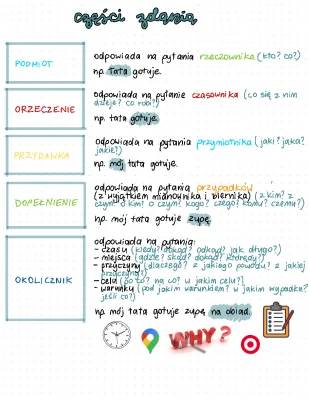 części zdania
PODMIOT
odpowiada na pytania rzeczownika (kto? co?)
np. Tata gotuje.
ORZECZENIE
odpowiada na pytanie czasownika (co się z nim
dzieje? co robi?)
np. tata gotuje.
PRZYDAWKA
odpowiada na pytania przymiotnika (jaki? jaka?
jakie?)
np. mój tata gotuje.
DOPEŁNIENIE
odpowiada na pytania przypadków
(z wyjątkiem mianownika i biernika) (z kim? z
czym? o kim? o czym? kogo? czego? komu? czemu?)
np. mój tata gotuje zupę.
OKOLICZNIK
odpowiada na pytania:
- czasu (kiedy? dokąd? odkąd? jak długo?)
- miejsca (gdzie? skąd? dokąd? którędy?)
- przyczyny (dlaczego? z jakiego powodu? z jakiej
przyczyny?)
- celu (po co? na co? w jakim celu?)
- warunku (pod jakim warunkiem? w jakim wypadku?
jeśli co?)
np. mój tata gotuje zupę na obiad.
WHY?